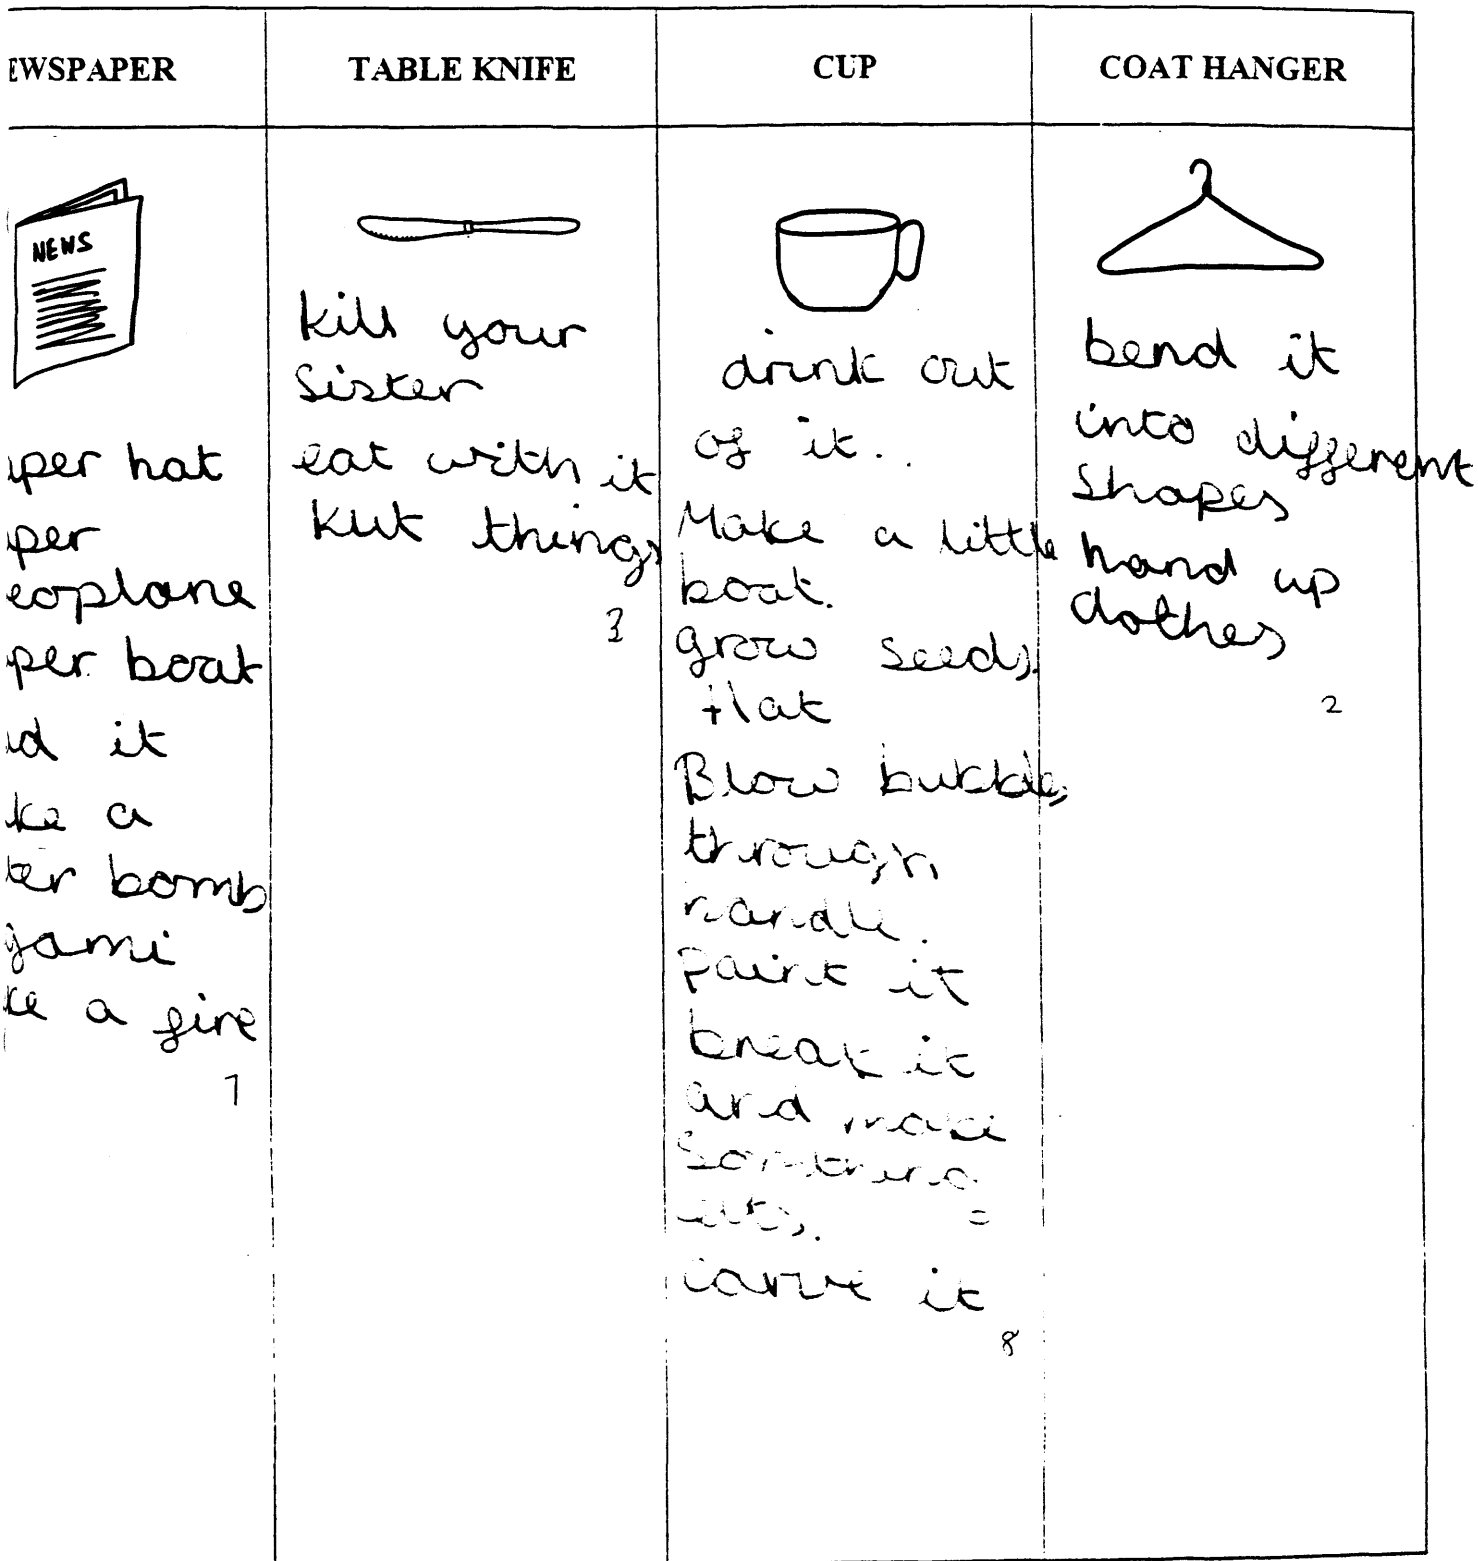 EWSPAPER
NEWS
per hat
per
eoplane
per boat
d it
ke a
ter bomb
gami
ke a fire
7
TABLE KNIFE
kill your
Sister
eat with it
kut things
3
CUP
drink out
of it..
Make a little
boat.
grow seeds.
hat
Blow bubbles
through
handle.
Paint it
break it
and make
Something
carve it
8
COAT HANGER
bend it
into different
Shapes
hand up
clothes
2